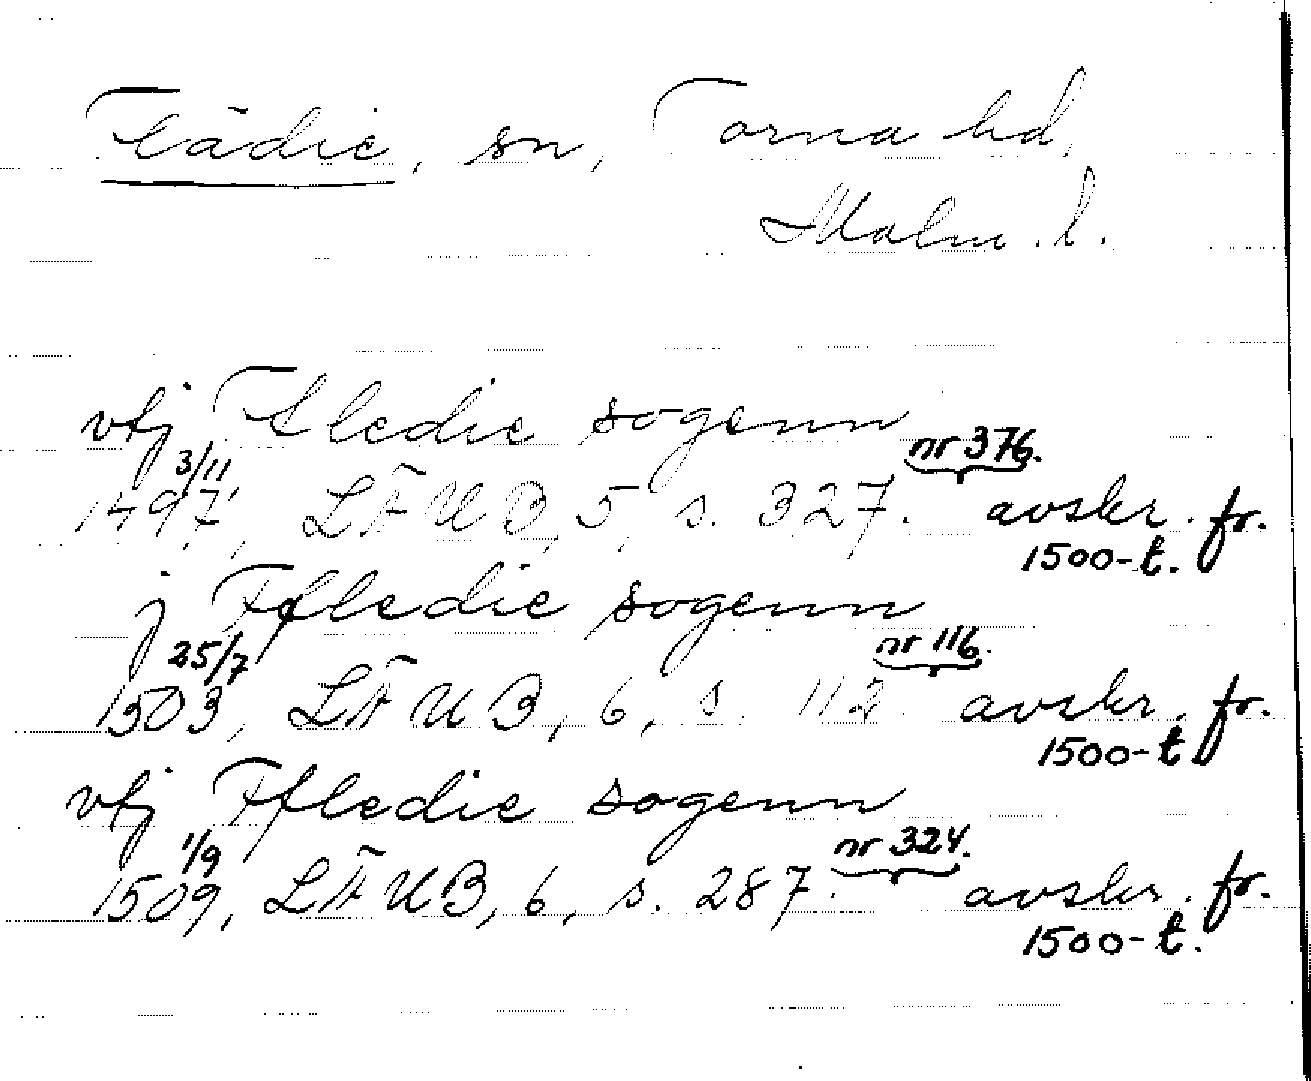 Flädie, sn, Torna hd,
Malm. l.
vtj Fledie sogenn
3/11 nr 376.
1497, LÄUB, 5, s. 327. avskr. fr.
1500-t.
j Ffledie sogenn
25/7 nr 116.
1503, LÄUB, 6, s. 112 avskr. fr.
1500-t.
vtj Ffledie sogenn
1/9 nr 324.
1509, LÄUB, 6, s. 287. avskr. fr.
1500-t.